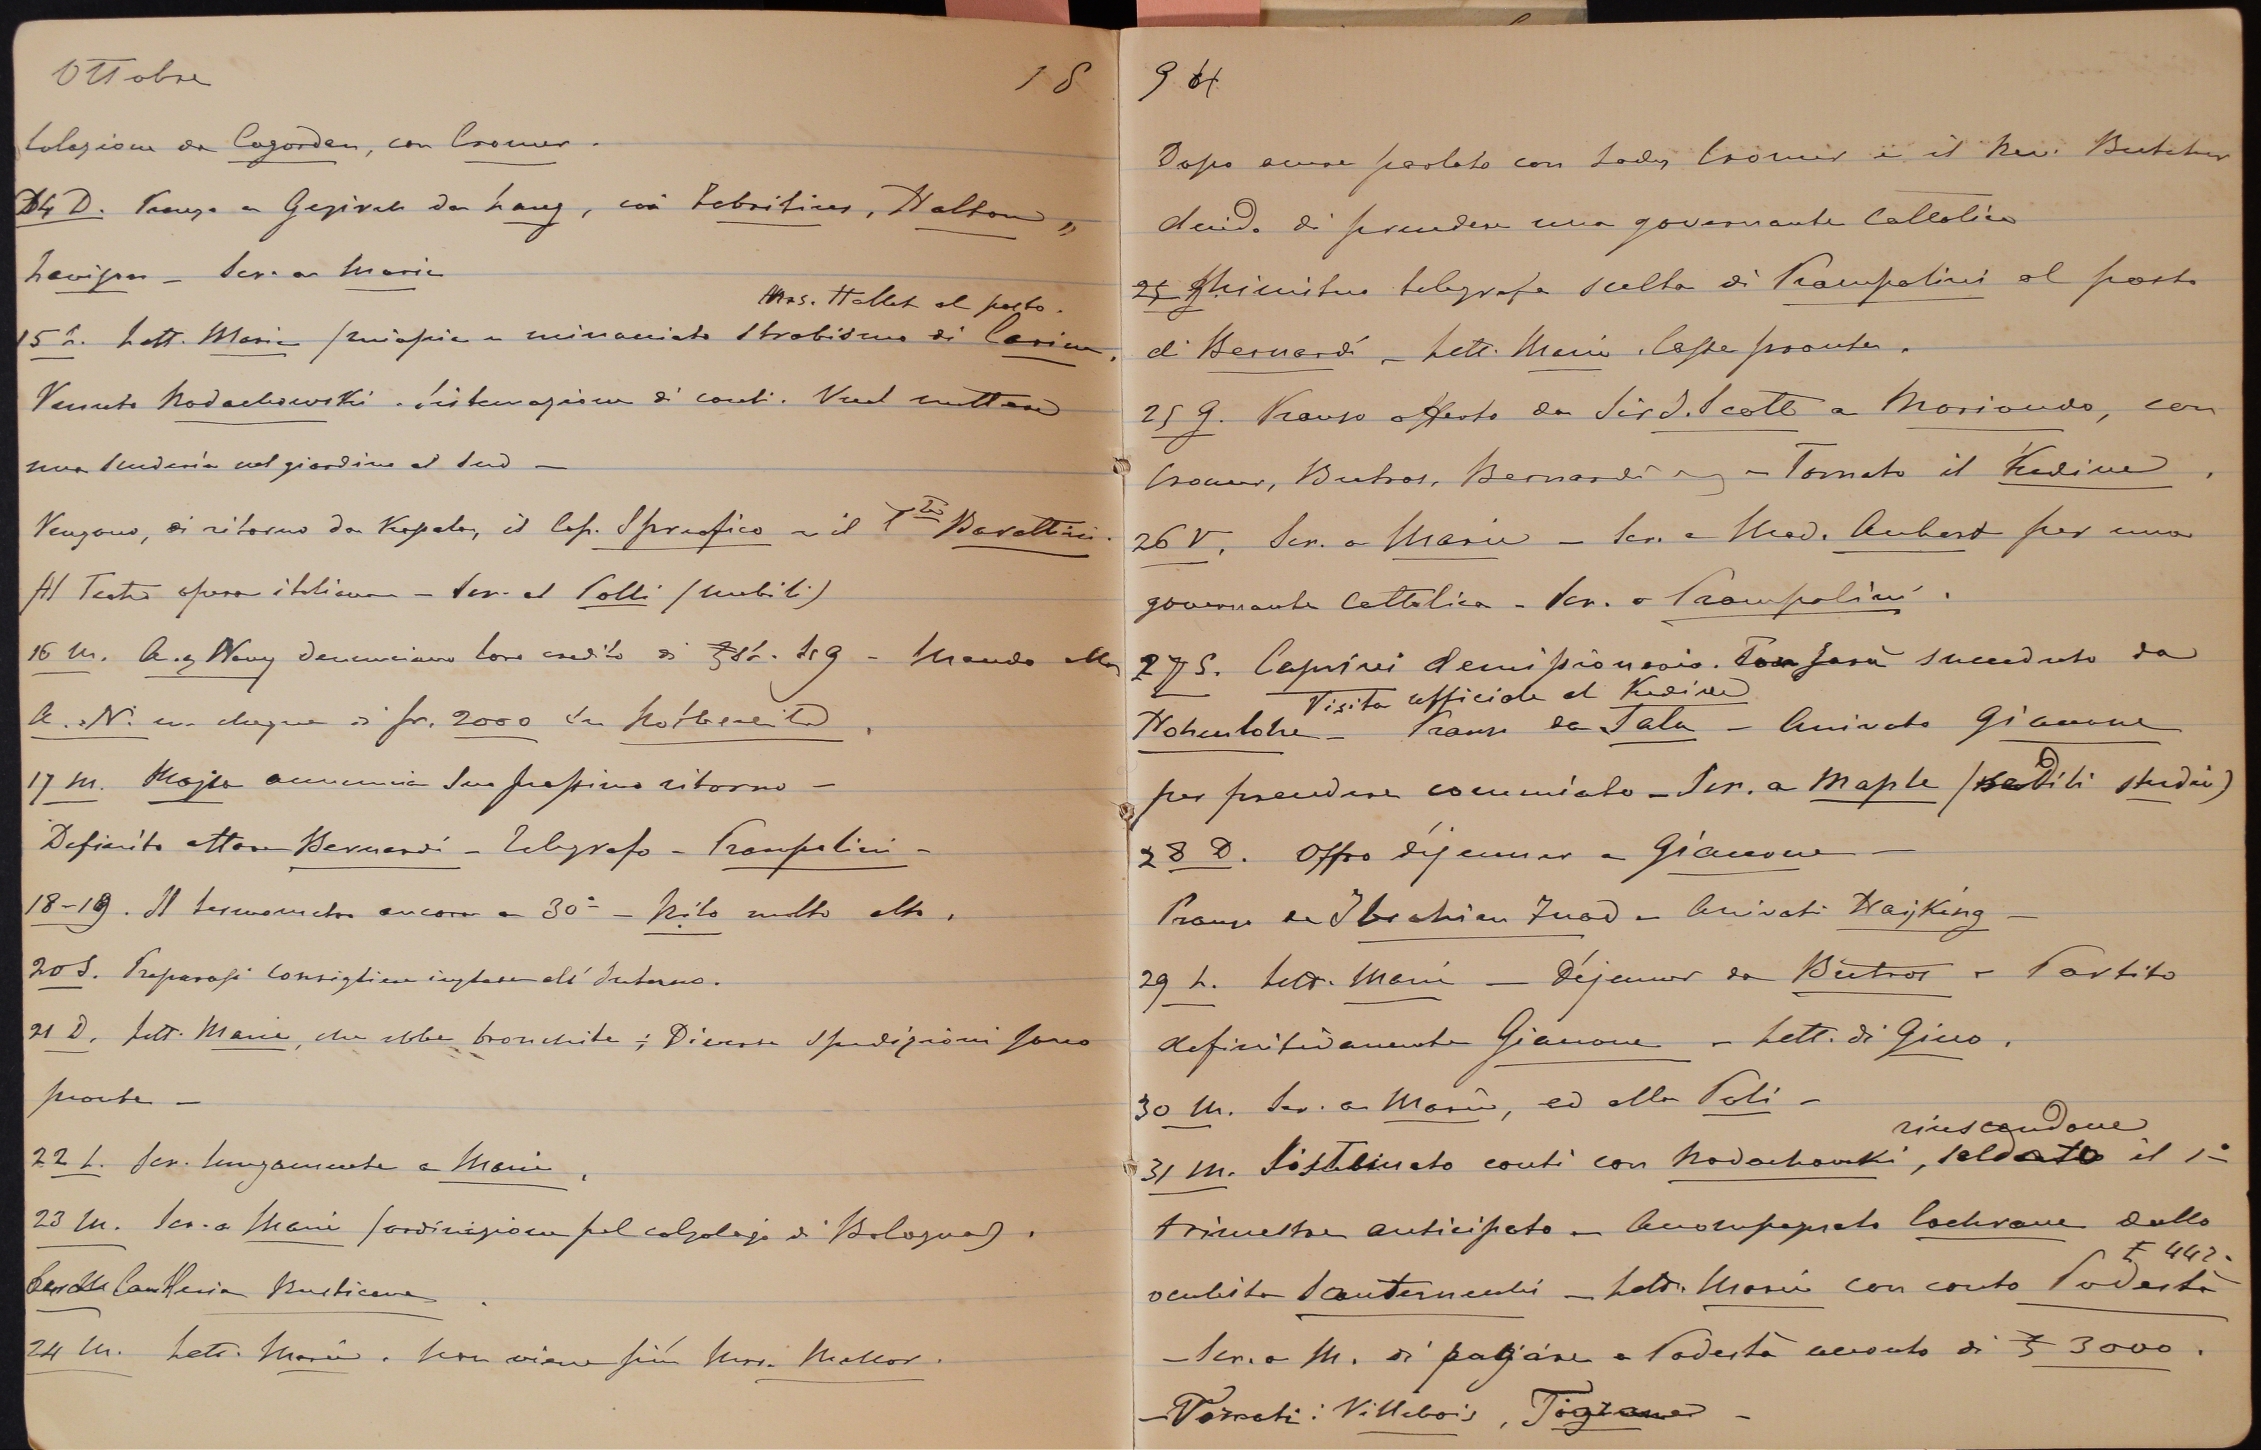 Ottobre 18
Colazione da Cogordan, con Cromer.
14 D. Pranzo a Gezireh da Lang, con Fabritius, Halton,
Lavison - Scr. a Marie
Mrs. Hallet al posto.
15 L. Lett. Marie (miopia e minacciato strabismo di Carina.
Venuto Rodachowski. Sistemazione di conti. Vuol mettere
una scuderia nel giardino al Sud -
Vengono, di ritorno da Kassala, il Cap. Spreafico e il Tte Barattieri.
Al Teatro opera italiana - Scr. al Polli (mobili)
16 M. A. & Navy denunciano loro credito di - Mando alla
A. & N. un cheque di fr. 2000 su
17 M. annuncia suo prossimo ritorno -
Definito affare Bernardi - Telegrafo - Prampolini -
18-19. Il termometro ancora a 30° - Nilo molto alto.
20 S. Preparasi consigliere inglese all'Interno.
21 D. Lett. Marie, che ebbe bronchite; Diverse spedizioni sono
pronte -
22 L. Scr. lungamente a Marie.
23 M. Scr. a Marie (ordinazione pel calzolajo di Bologna).
Cavalleria Rusticana.
24 M. Lett. Marie. Non viene più Mrs. Mellor.
94
Dopo avere parlato con Lady Cromer e il Rev. Butcher
decido di prendere una governante Cattolica
25 G. Ministro telegrafa scelta di Prampolini al posto
di Bernardi - Lett. Marie. Casse pronte.
25 G. Pranzo offerto da Sir J. Scott a Moriondo, con
Cromer, Butros, Bernardi - Tornato il Kedive.
26 V. Scr. a Marie - Scr. a Mad. Aubert per una
governante Cattolica - Scr. a Prampolini.
27 S. Caprivi demissionario. Sarà succeduto da
Visita ufficiale al Kedive
Hohenlohe - Pranzo da Sala - Arrivato Gianone
per prendere commiato - Scr. a Maple (studio)
28 D. Offro déjeuner a Gianone -
Pranzo da Ibrahim Fuad - Arrivati Heyking -
29 L. Lett. Marie - Déjeuner da Butros - Partito
definitivamente Gianone - Lett. di Gino.
30 M. Scr. a Marie, ed alla Poli -
riuscendone
31 M. Sistemato conti con Rodachowski, saldato il 1°
trimestre anticipato - Accompagnato Cochrane dallo
£ 442.
oculista - Lett. Marie con conto Podestà
- Scr. a M. di pagare a Podestà acconto di £ 3000.
- Tornati: Villebois, Tigrane -